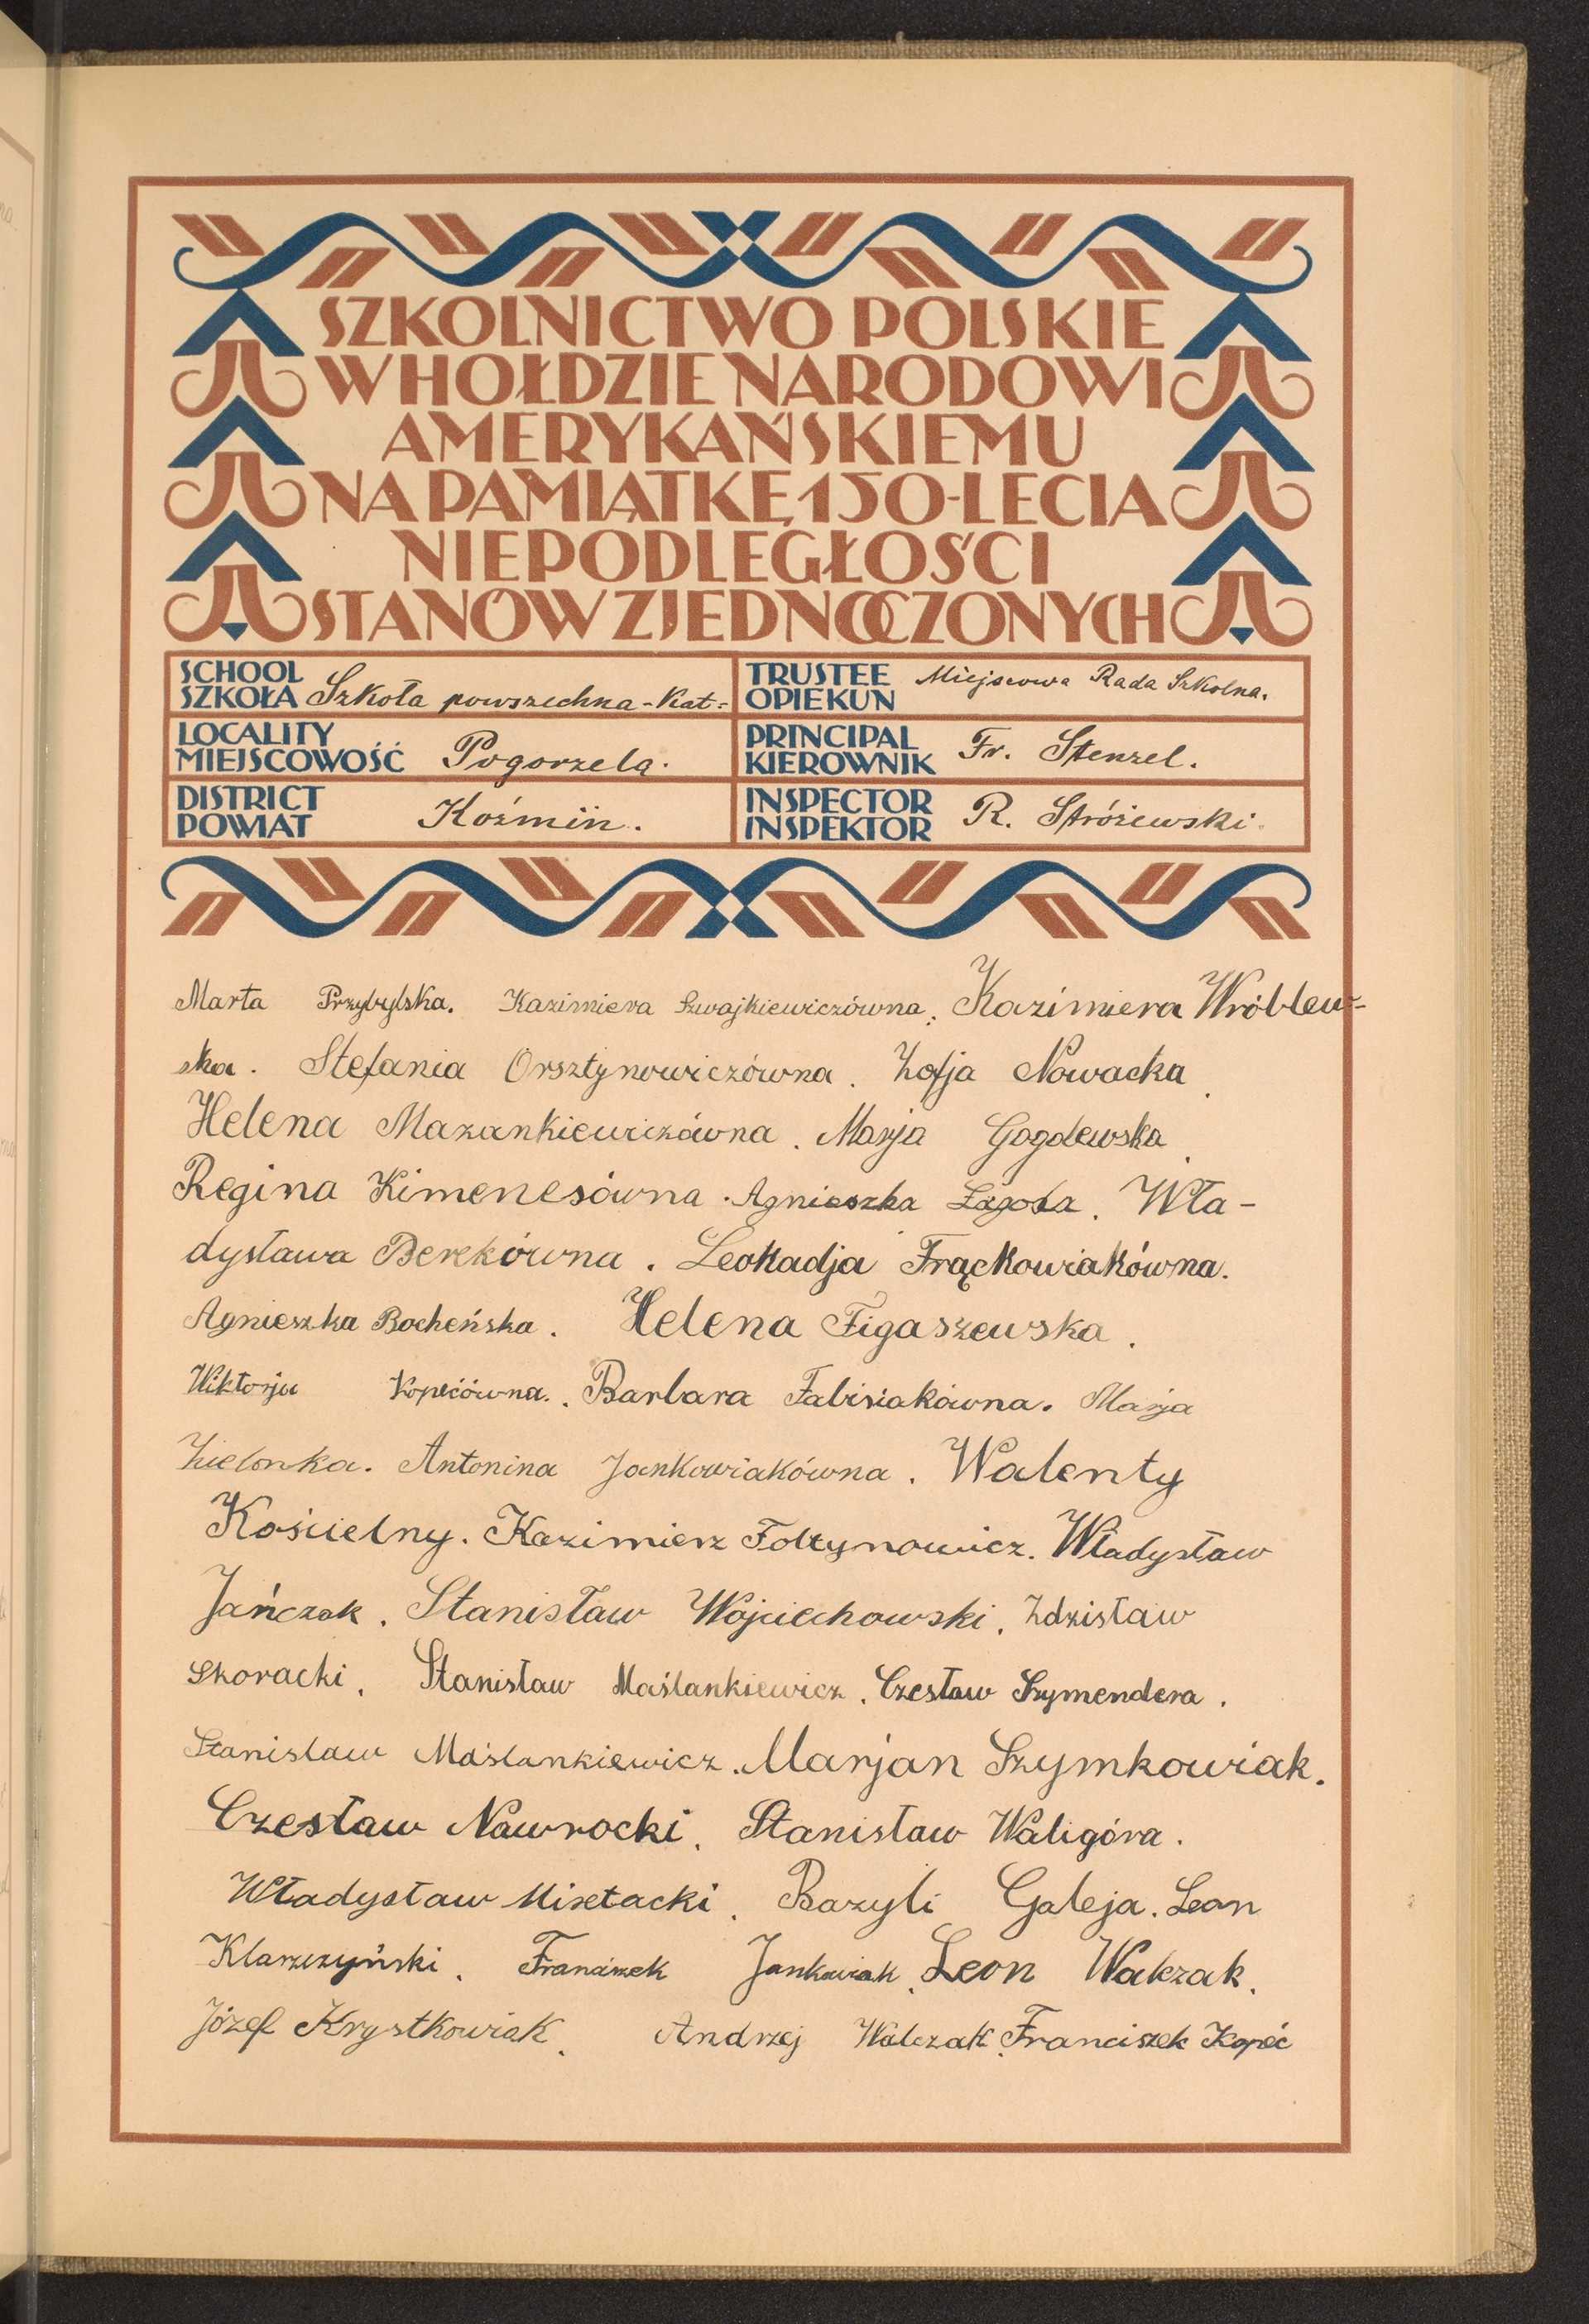 SZKOLNICTWO POLSKIE
W HOŁDZIE NARODOWI
AMERYKAŃSKIEMU
NA PAMIĄTKĘ 150-LECIA
NIEPODLEGŁOŚCI
STANÓW ZJEDNOCZONYCH
SCHOOL
SZKOŁA Szkoła powszechna-Kat-
TRUSTEE
OPIEKUN Miejscowa Rada Szkolna.
LOCALITY
MIEJSCOWOŚĆ Pogorzela.
PRINCIPAL
KIEROWNIK Fr. Stenzel.
DISTRICT
POWIAT Koźmin.
INSPECTOR
INSPEKTOR R. Stróżewski.
Marta Przybylska. Kazimiera Szwajkiewiczówna. Kazimiera Wróblew-
ska. Stefania Orsztynowiczówna. Zofja Nowacka.
Helena Mazankiewiczówna. Marja Gogolewska.
Regina Kimenesówna. Agnieszka Łagoda. Wła-
dysława Berekówna. Leokadja Frąckowiakówna.
Agnieszka Bocheńska. Helena Figaszewska.
Wiktorja Kopećówna. Barbara Fabisiakówna. Marja
Zielonka. Antonina Jankowiakówna. Walenty
Kościelny. Kazimierz Foltynowicz. Władysław
Jańczak. Stanisław Wojciechowski. Zdzisław
Skoracki. Stanisław Maślankiewicz. Czesław Szymendera.
Stanisław Maślankiewicz. Marjan Szymkowiak.
Czesław Nawrocki. Stanisław Waligóra.
Władysław Bazyli Galeja. Leon
Klarzyński. Franciszek Jankowiak. Leon Walczak.
Józef Krystkowiak. Andrzej Walczak. Franciszek Kopeć